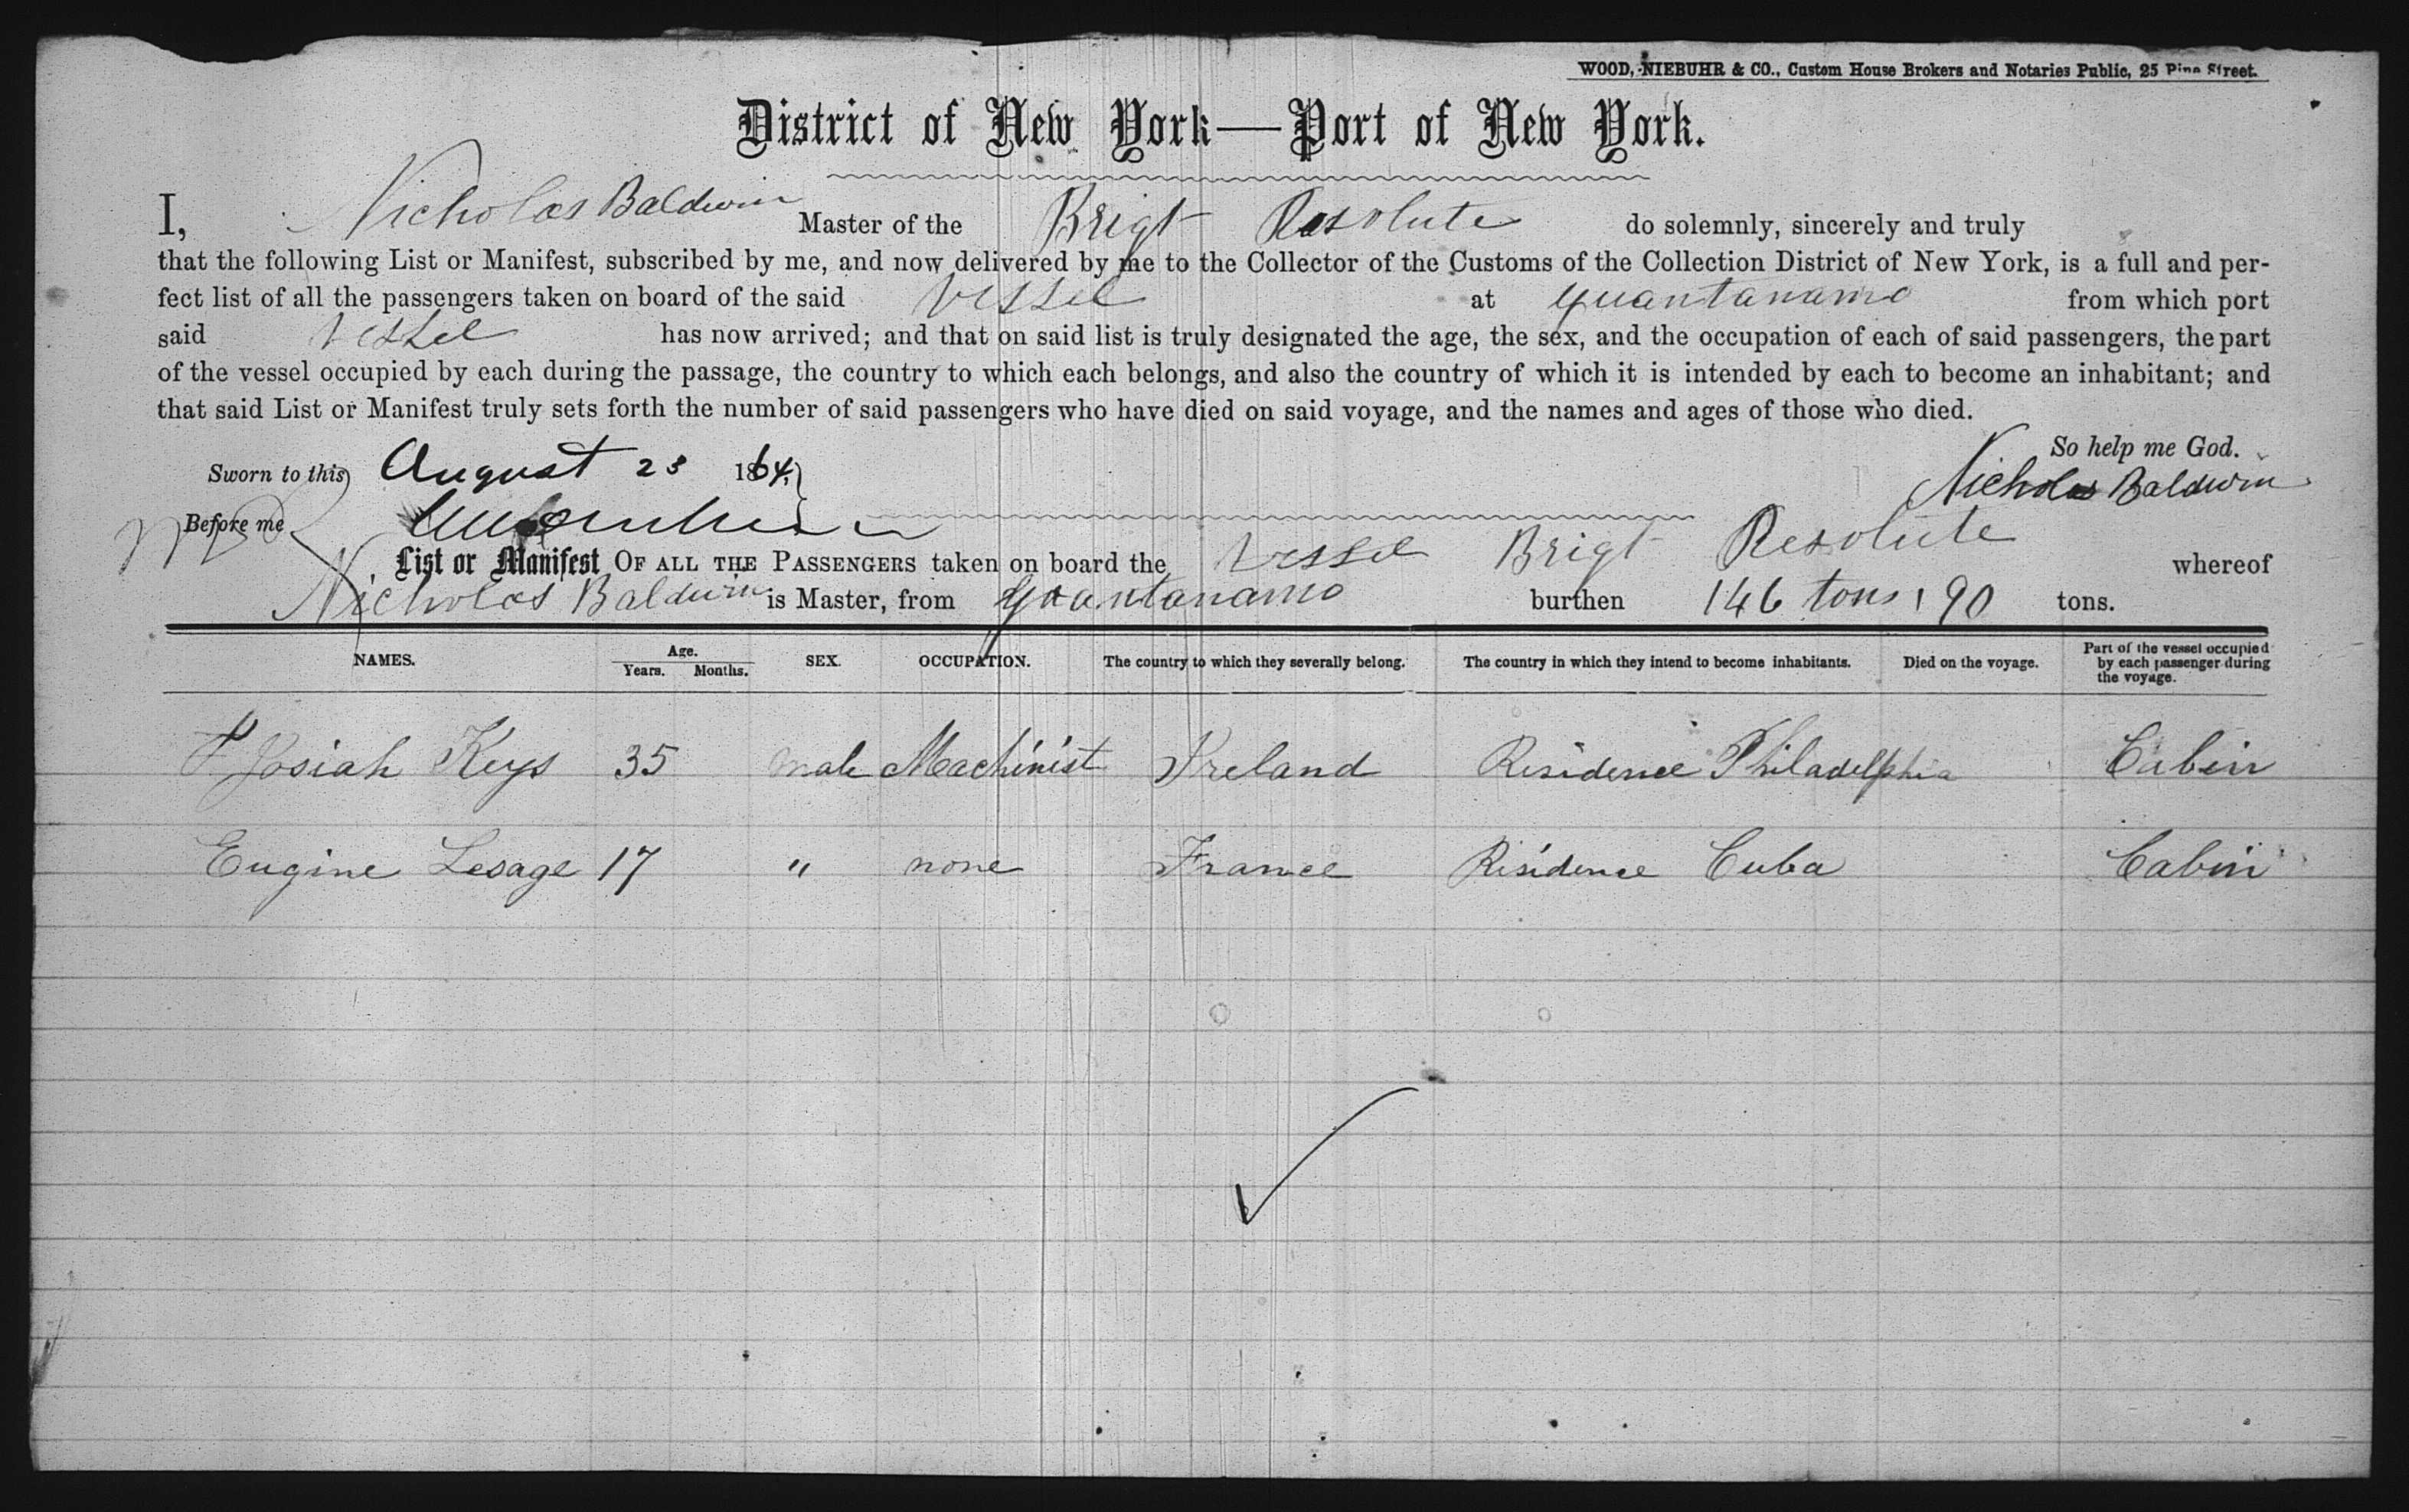 WOOD, NIEBUHR & CO., Custom House Brokers and Notaries Public, 25 Pine Street.
District of New York—Port of New York.
I, Nicholas Baldwin Master of the Brigt Resolute do solemnly, sincerely and truly
that the following List or Manifest, subscribed by me, and now delivered by me to the Collector of the Customs of the Collection District of New York, is a full and per-
fect list of all the passengers taken on board of the said Vessel at Guantanamo from which port
said Vessel has now arrived; and that on said list is truly designated the age, the sex, and the occupation of each of said passengers, the part
of the vessel occupied by each during the passage, the country to which each belongs, and also the country of which it is intended by each to become an inhabitant; and
that said List or Manifest truly sets forth the number of said passengers who have died on said voyage, and the names and ages of those who died.
So help me God.
Sworn to this August 23 1864, Nicholas Baldwin
Before me
List or Manifest OF ALL THE PASSENGERS taken on board the Vessel Brigt Resolute whereof
Nicholas Baldwin is Master, from Guantanamo burthen 146 tons, 90 tons.
NAMES. Age. Years. Months. SEX. OCCUPATION. The country to which they severally belong. The country in which they intend to become inhabitants. Died on the voyage. Part of the vessel occupied by each passenger during the voyage.
Josiah Keys 35 male Machinist Ireland Residence Philadelphia Cabin
Eugine Lesage 17 " none France Residence Cuba Cabin